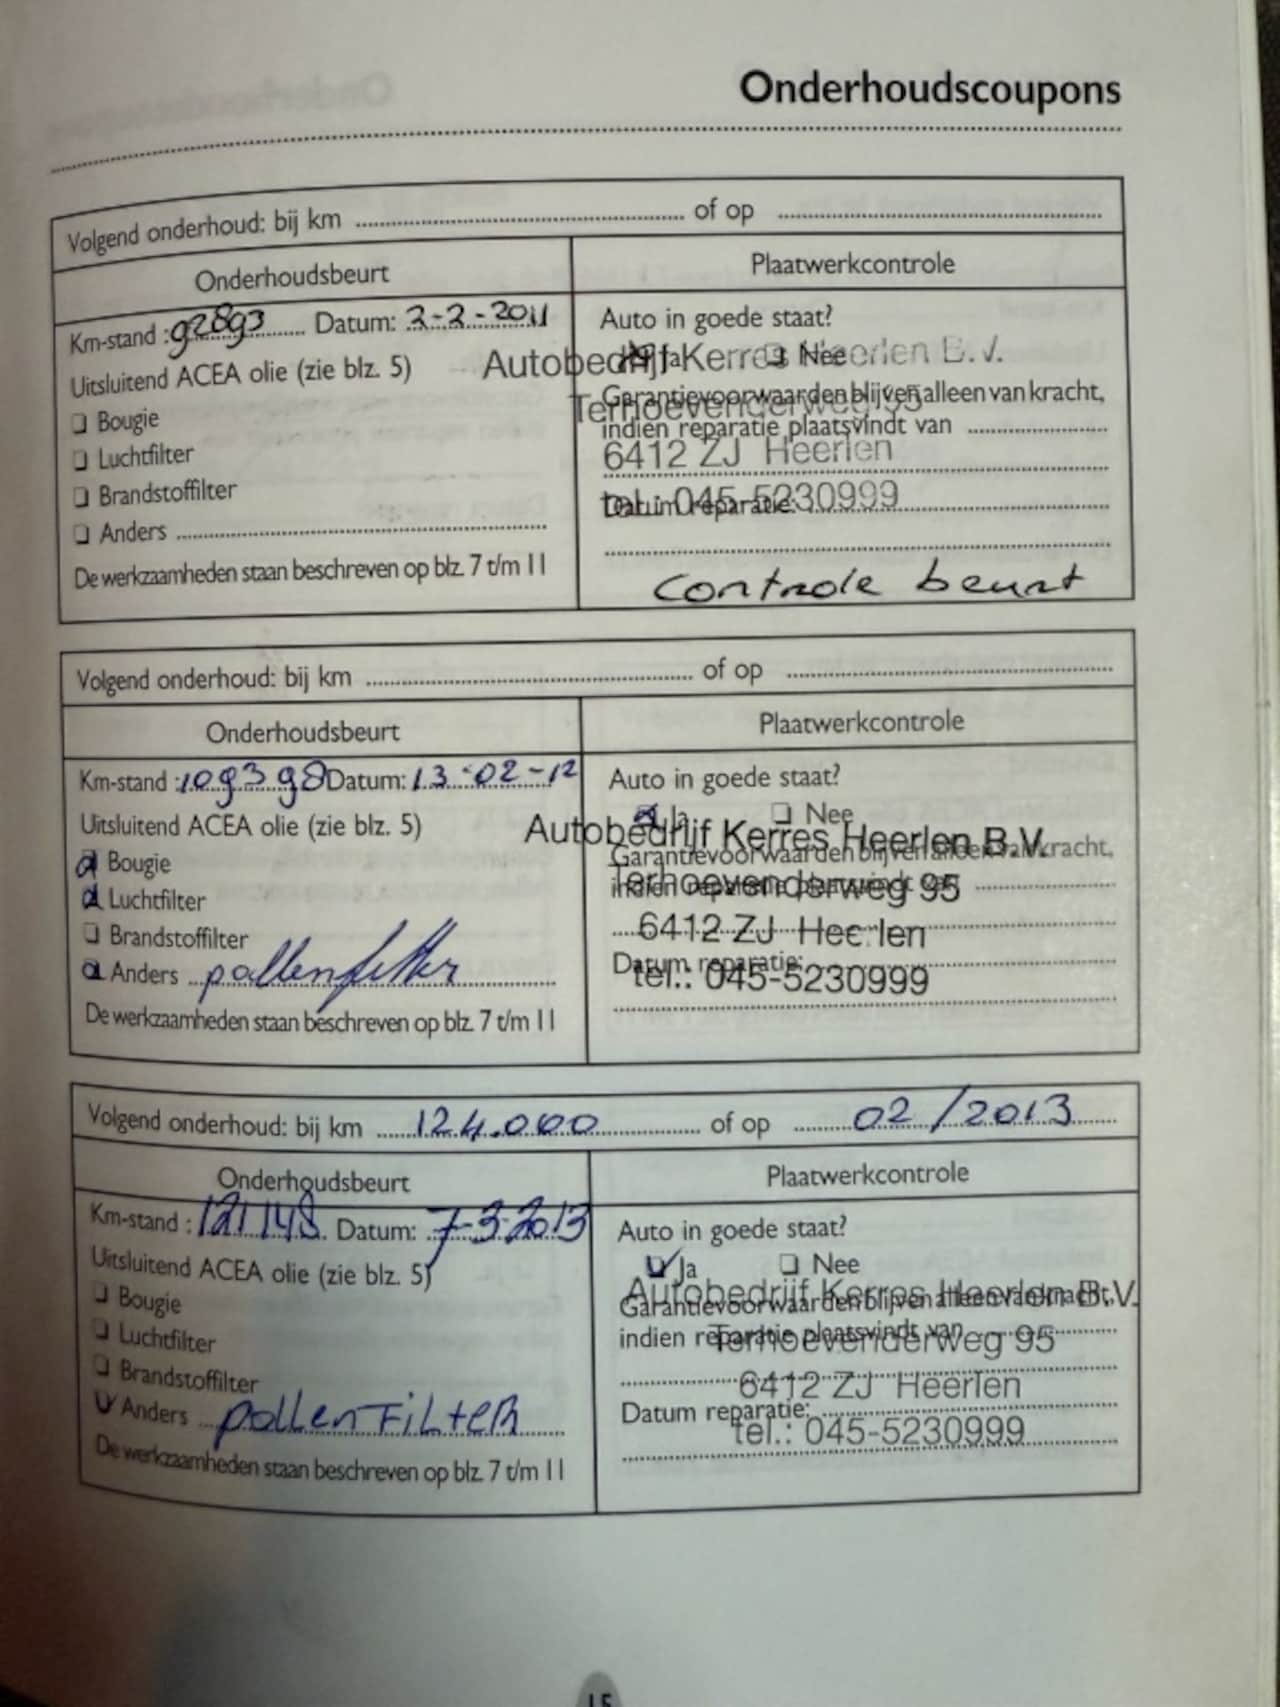 Onderhoudscoupons
Volgend onderhoud: bij km of op
Onderhoudsbeurt Plaatwerkcontrole
Km-stand : 92893 Datum: 2-2-2011 Auto in goede staat?
Uitsluitend ACEA olie (zie blz. 5) Ja Nee
Autobedrijf Kerres Heerlen B.V.
Bougie Garantievoorwaarden blijven alleen van kracht,
Terhoevenderweg 95
indien reparatie plaatsvindt van
Luchtfilter 6412 ZJ Heerlen
Brandstoffilter Datum reparatie:
tel.: 045-5230999
Anders
De werkzaamheden staan beschreven op blz. 7 t/m 11 controle beurt
Volgend onderhoud: bij km of op
Onderhoudsbeurt Plaatwerkcontrole
Km-stand : 109398 Datum: 13-02-12 Auto in goede staat?
Uitsluitend ACEA olie (zie blz. 5) Ja Nee
Autobedrijf Kerres Heerlen B.V.
Bougie Garantievoorwaarden blijven alleen van kracht,
Luchtfilter indien reparatie plaatsvindt van
Terhoevenderweg 95
Brandstoffilter 6412 ZJ Heerlen
Anders pollenfilter Datum reparatie:
tel.: 045-5230999
De werkzaamheden staan beschreven op blz. 7 t/m 11
Volgend onderhoud: bij km 124.000 of op 02/2013
Onderhoudsbeurt Plaatwerkcontrole
Km-stand : 121148 Datum: 7-3-2013 Auto in goede staat?
Uitsluitend ACEA olie (zie blz. 5) Ja Nee
Autobedrijf Kerres Heerlen B.V.
Bougie Garantievoorwaarden blijven alleen van kracht,
Luchtfilter indien reparatie plaatsvindt van
Terhoevenderweg 95
Brandstoffilter 6412 ZJ Heerlen
Anders pollenFiLteR Datum reparatie:
tel.: 045-5230999
De werkzaamheden staan beschreven op blz. 7 t/m 11
15